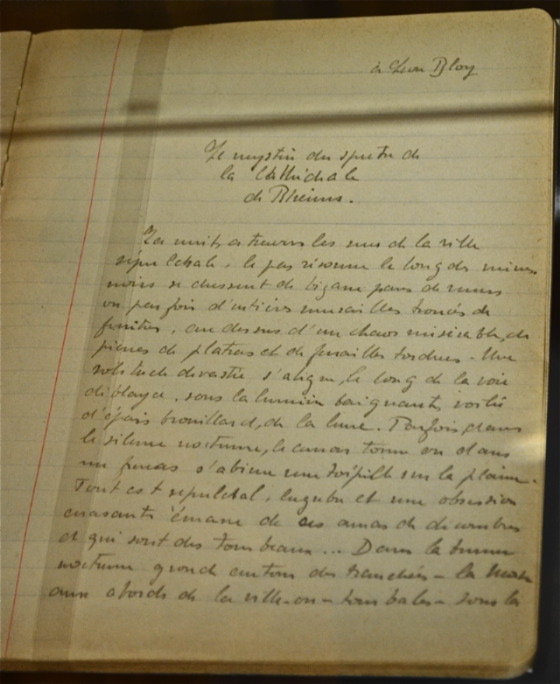 à Léon Bloy
Le mystère du spectre de
la Cathédrale
de Rheims.
La nuit, à travers les rues de la ville
sépulcrale, le pas résonne le long des
noirs se dressent de bizarres pans de murs
ou parfois d'entières murailles trouées de
fenêtres, au dessus d'un chaos misérable, de
pierres de platras et de ferrailles tordues. Une
solitude dévastée le long de la voie
déblayée, sous la lumière baignante, voilée
d'épais brouillard, de la lune. Parfois, dans
le silence nocturne, le canon tonne ou dans
un fracas s'abime une sur la plaine.
Tout est sépulcral, lugubre et une obsession
écrasante émane de ces amas de décombres
et qui sont des tombeaux... Dans la
nocturne gronde autour des tranchées - la
aux abords de la ville - sous la